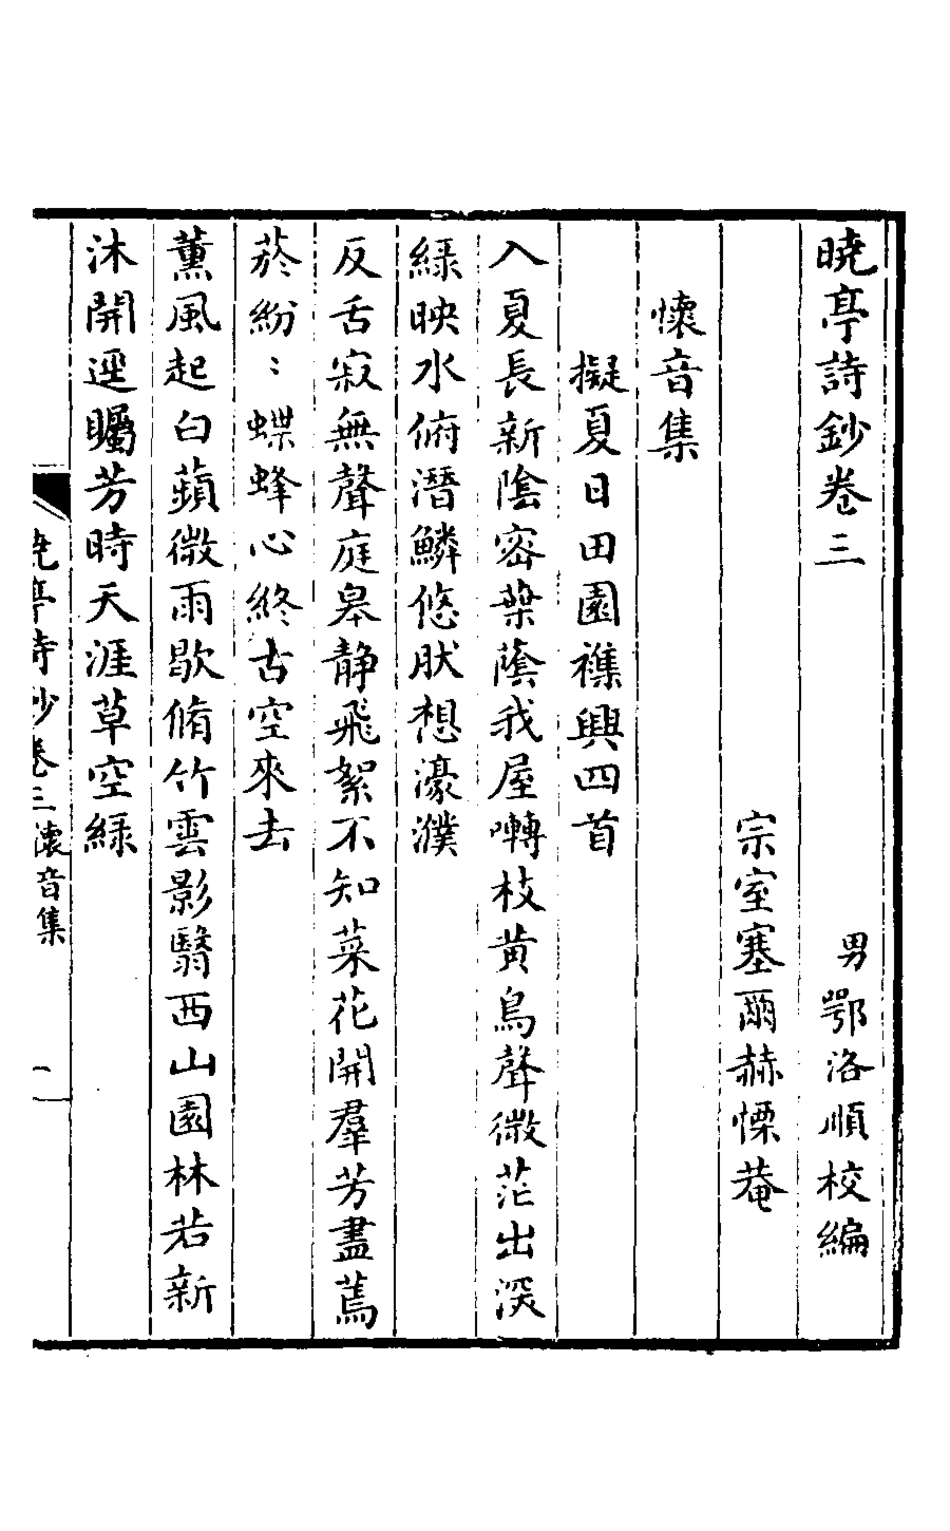 曉亭詩鈔卷三　男鄂洛順校編
宗室塞爾赫慄菴
懷音集
擬夏日田園襍興四首
入夏長新陰密葉蔭我屋囀枝黄鳥聲微茫出深
綠映水俯潛鱗悠肰想濠濮
反舌寂無聲庭皋静飛絮不知菜花開羣芳盡蔫
菸紛〻蝶蜂心終古空來去
薰風起白蘋微雨歇脩竹雲影翳西山園林若新
沐開逕矚芳時天涯草空綠
曉亭詩鈔卷三懷音集　一